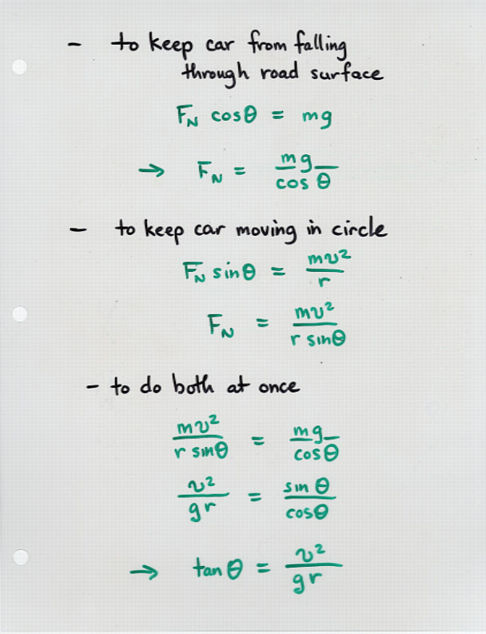 - to keep car from falling
through road surface
F_N cosθ = mg
→ F_N = mg / cos θ
- to keep car moving in circle
F_N sinθ = mv² / r
F_N = mv² / r sinθ
- to do both at once
mv² / r sinθ = mg / cosθ
v² / gr = sin θ / cosθ
→ tan θ = v² / gr